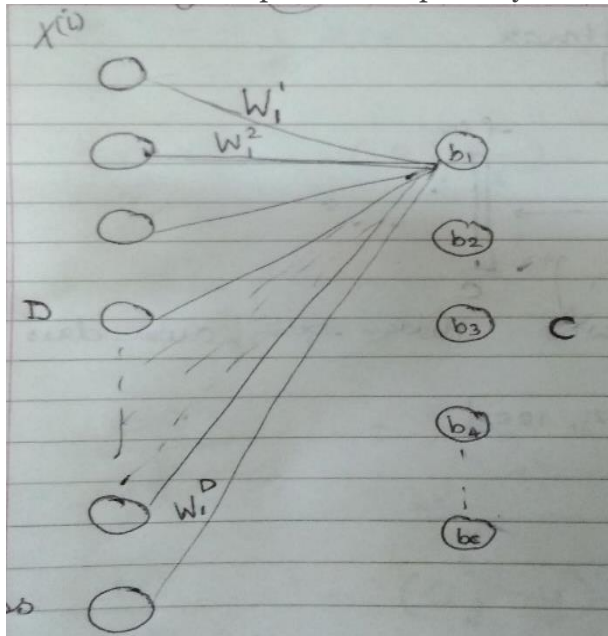 X^(i)
W_1^1
W_1^2
b_1
b_2
D
b_3
C
b_4
W_1^D
b_c